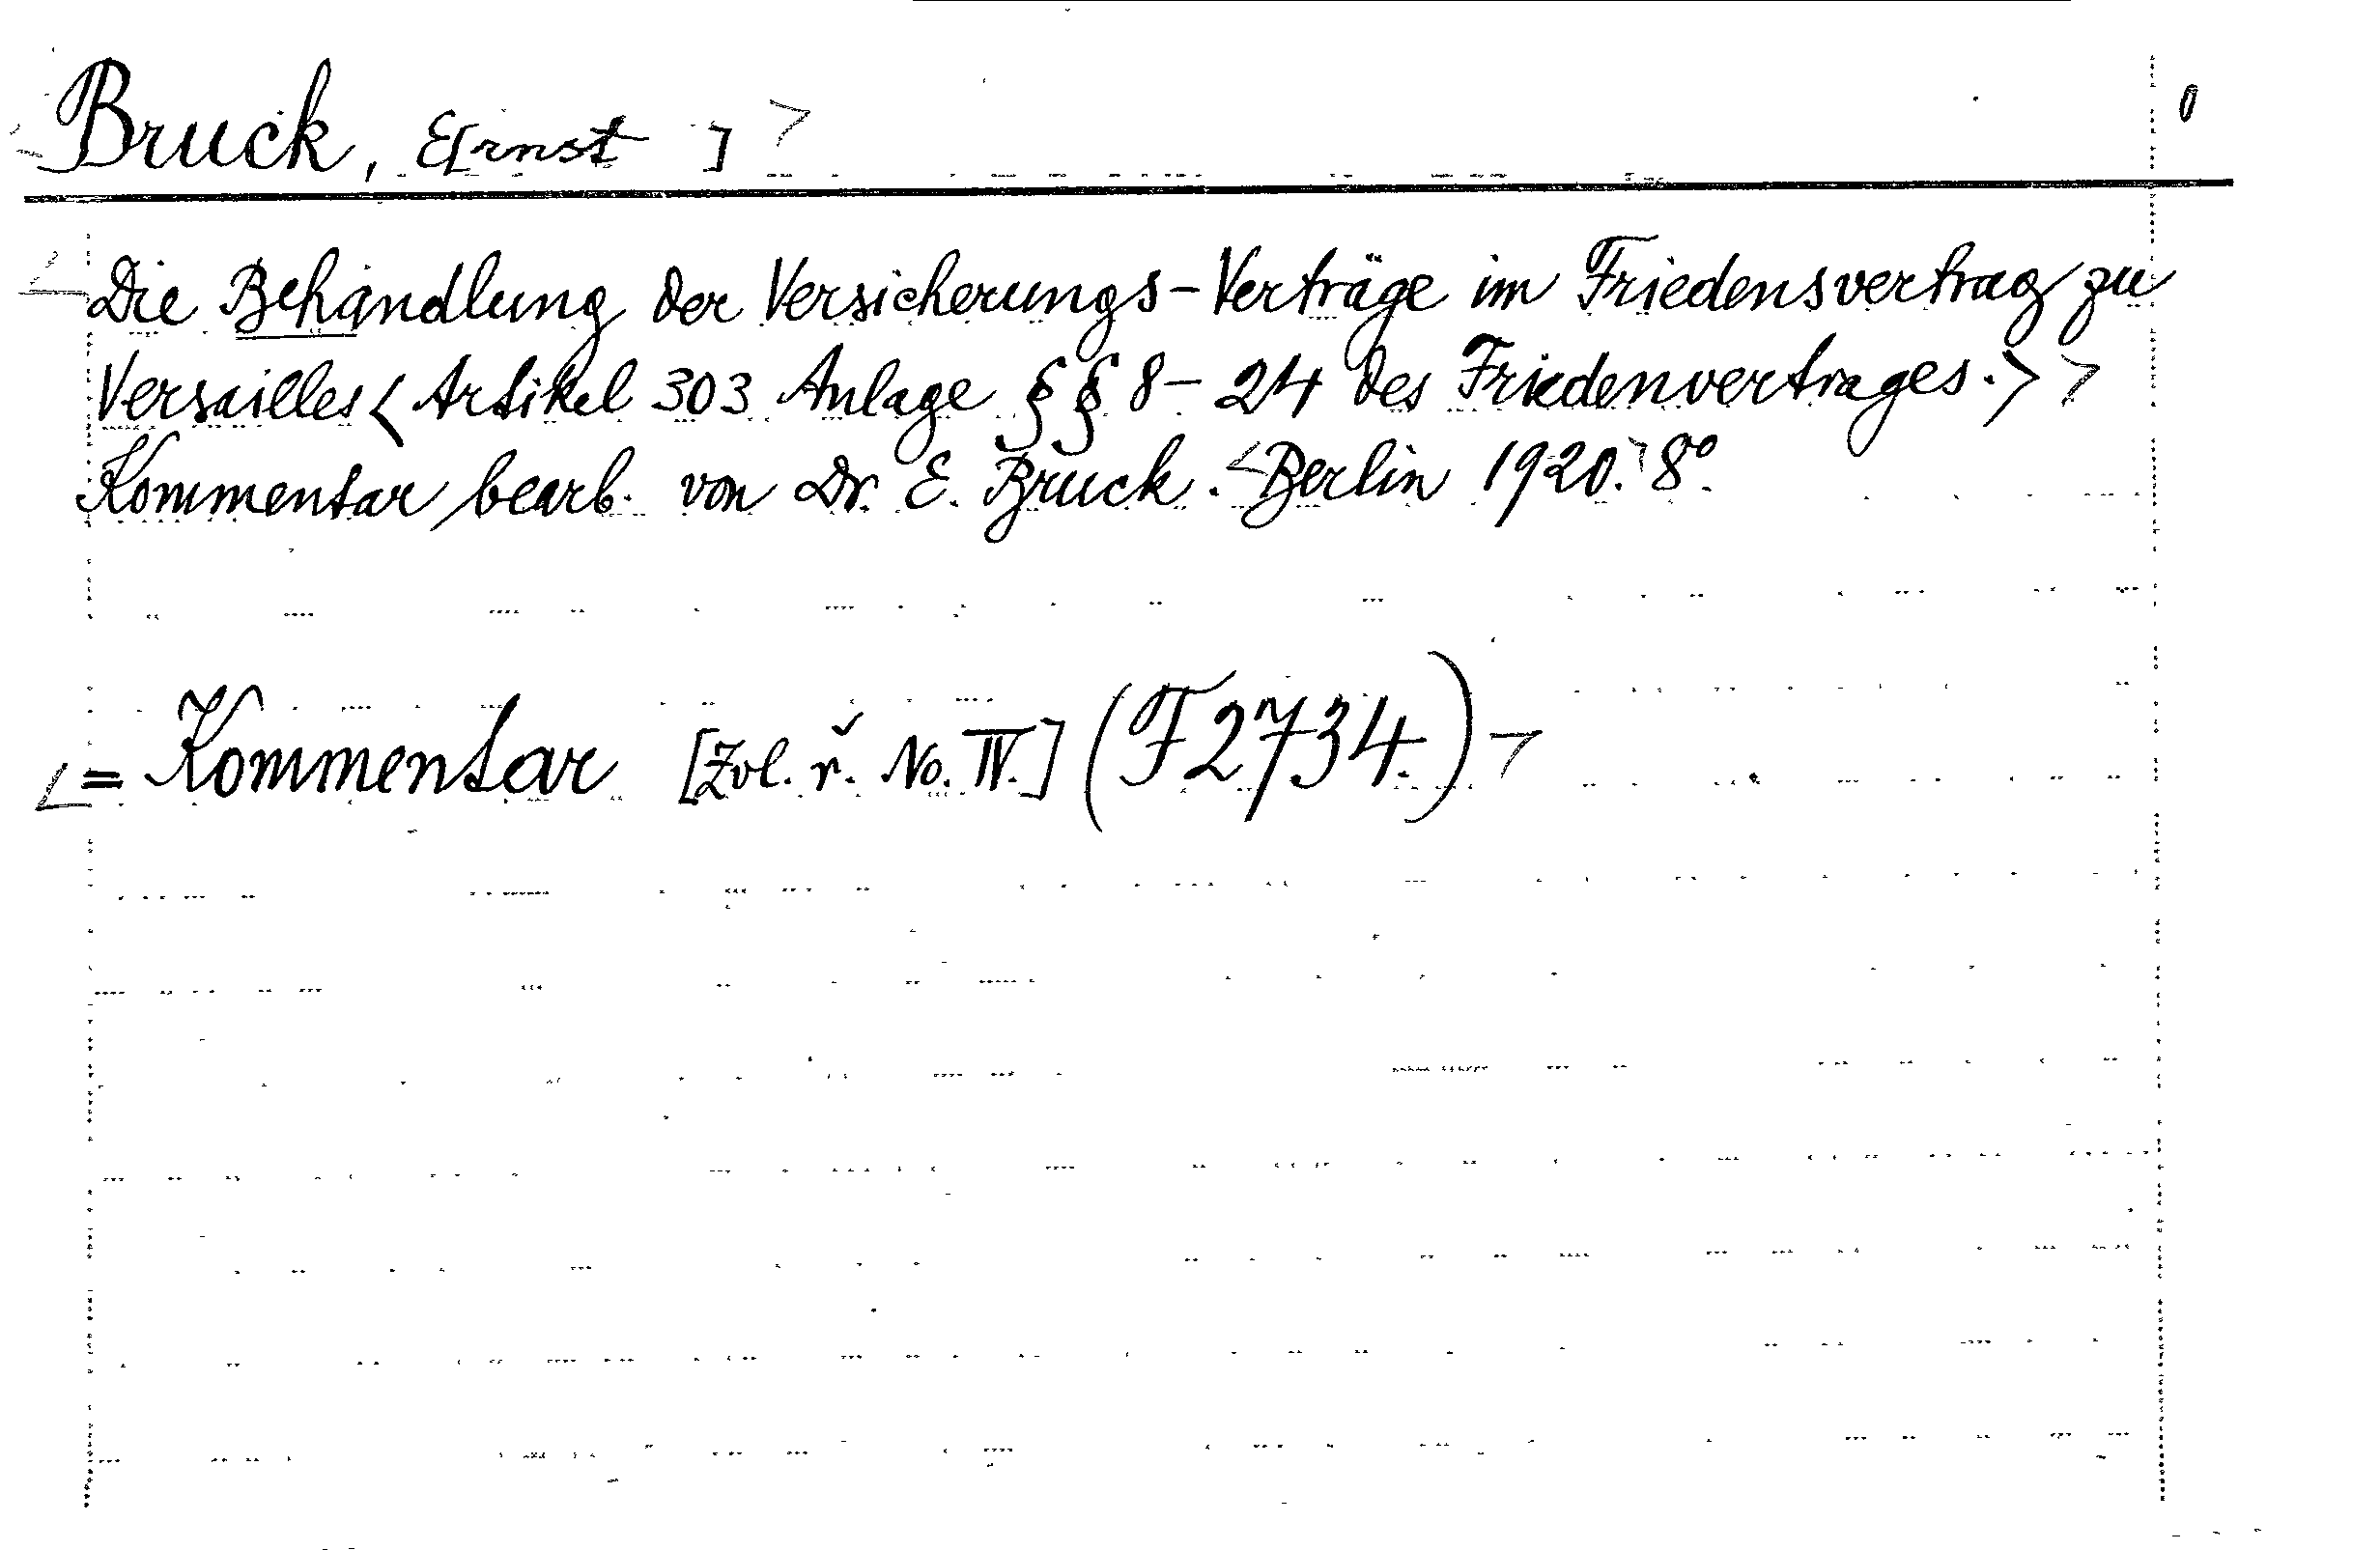 Bruck, E[rnst ] > 0
< Die Behandlung der Versicherungs-Verträge im Friedensvertrag zu
Versailles < Artikel 303 Anlage §§ 8 - 24 des Friedenvertrages. > >
Kommentar bearb. von Dr. E. Bruck. < Berlin 1920. > 8º.
< = Kommentar [Zvl. ř. No. IV.] (F2734.) >